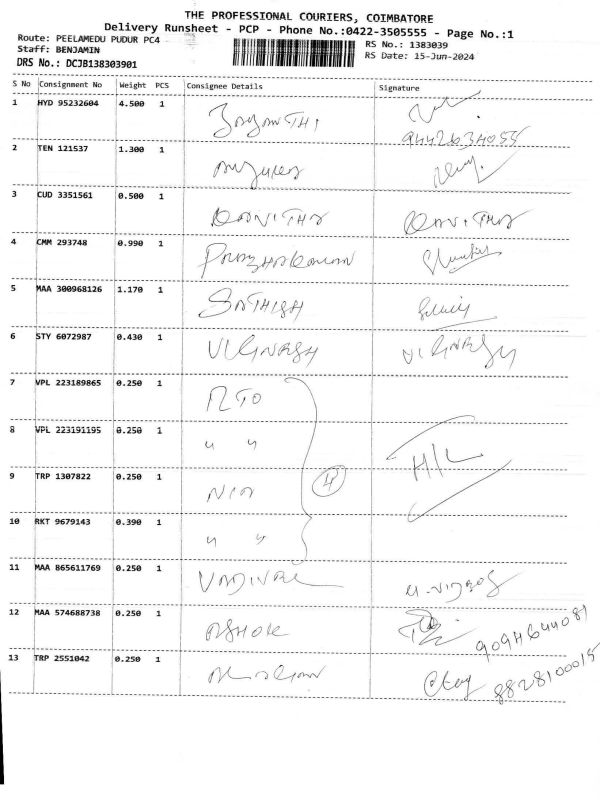 THE PROFESSIONAL COURIERS, COIMBATORE
Delivery Runsheet - PCP - Phone No.:0422-3505555 - Page No.:1
Route: PEELAMEDU PUDUR PC4
RS No.: 1383039
Staff: BENJAMIN
RS Date: 15-Jun-2024
DRS No.: DCJB138303901
S No Consignment No Weight PCS Consignee Details Signature
1 HYD 95232604 4.500 1 JAYANTHI
9442634055
2 TEN 121537 1.300 1
3 CUD 3351561 0.500 1 KAVITHA KAVITHA
4 CMM 293748 0.990 1
5 MAA 300968126 1.170 1 SATHISH
6 STY 6072987 0.430 1 VIGNESH VIGNESH
7 VPL 223189865 0.250 1 RTO
8 VPL 223191195 0.250 1 " "
H/L
9 TRP 1307822 0.250 1 N/A 4
10 RKT 9679143 0.390 1 " "
11 MAA 865611769 0.250 1 VADIVEL
12 MAA 574688738 0.250 1 ASHOK
9094644081
13 TRP 2551042 0.250 1
8828100015